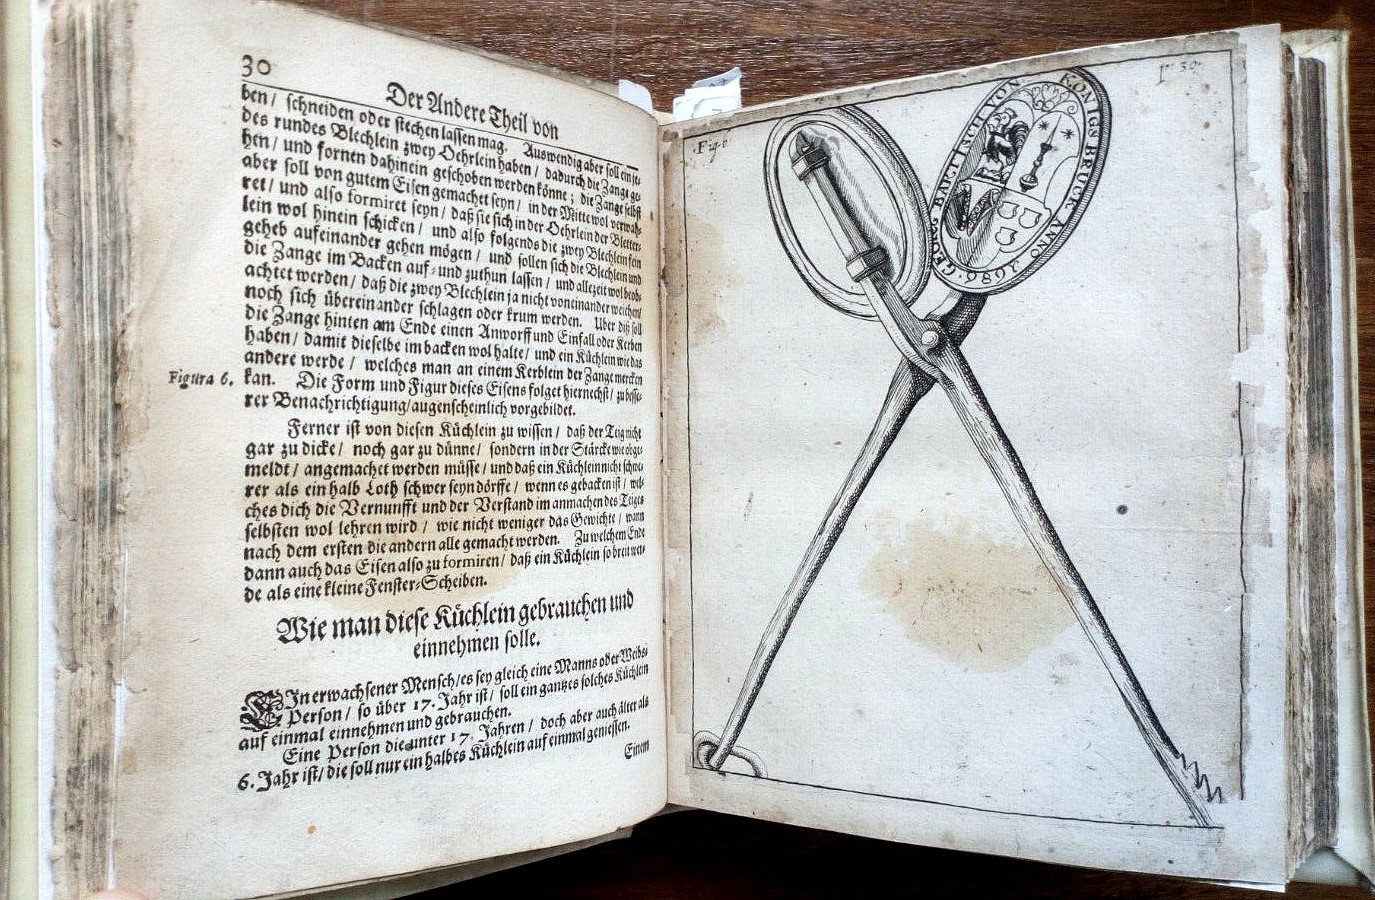 30
Der Andere Theil von
ben / schneiden oder stechen lassen mag. Auswendig aber soll ein je-
des rundes Blechlein zwey Oehrlein haben / dadurch die Zange ge-
hen / und fornen dahinein geschoben werden könne ; die Zange selbst
aber soll von gutem Eisen gemachet seyn / in der Mitte wol verwah-
ret / und also formiret seyn / daß sie sich in der Oehrlein der Bletter-
lein wol hinein schicken / und also folgends die zwey Blechlein fein
geheb aufeinander gehen mögen / und sollen sich die Blechlein und
die Zange im Backen auf- und zuthun lassen / und allezeit wol beob-
achtet werden / daß die zwey Blechlein ja nicht voneinander weichen /
noch sich übereinander schlagen oder krum werden. Uber diß soll
die Zange hinten am Ende einen Anworff und Einfall oder Kerben
haben / damit dieselbe im backen wol halte / und ein Küchlein wie das
andere werde / welches man an einem Kerblein der Zange mercken
Figura 6. kan. Die Form und Figur dieses Eisens folget hiernechst / zu besse-
rer Benachrichtigung / augenscheinlich vorgebildet.
Ferner ist von diesen Küchlein zu wissen / daß der Teig nicht
gar zu dicke / noch gar zu dünne / sondern in der Stärcke wie obge-
meldt / angemachet werden müsse / und daß ein Küchlein nicht schwe-
rer als ein halb Loth schwer seyn dörffe / wenn es gebacken ist / wel-
ches dich die Vernunfft und der Verstand im anmachen des Teiges
selbsten wol lehren wird / wie nicht weniger das Gewichte / wann
nach dem ersten die andern alle gemacht werden. Zu welchem Ende
dann auch das Eisen also zu formiren / daß ein Küchlein so breit wer-
de als eine kleine Fenster-Scheiben.
Wie man diese Küchlein gebrauchen und
einnehmen solle.
EIn erwachsener Mensch / es sey gleich eine Manns oder Weibs-
Person / so über 17. Jahr ist / soll ein gantzes solches Küchlein
auf einmal einnehmen und gebrauchen.
Eine Person die unter 17. Jahren / doch aber auch älter als
6. Jahr ist / die soll nur ein halbes Küchlein auf einmal geniessen.
Einem
Fig. 6
p. 30.
GEORG BARTISCH VON KÖNIGSBRUCK ANNO 1686